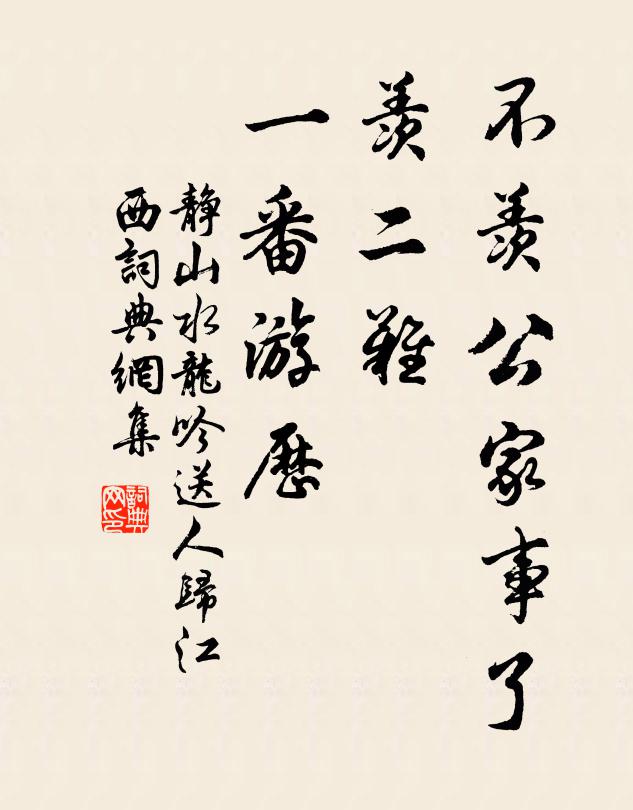 不羨公家事了
羨二難
一番游歷
靜山水龍吟送人歸江
西詞典網集
詞典
网印